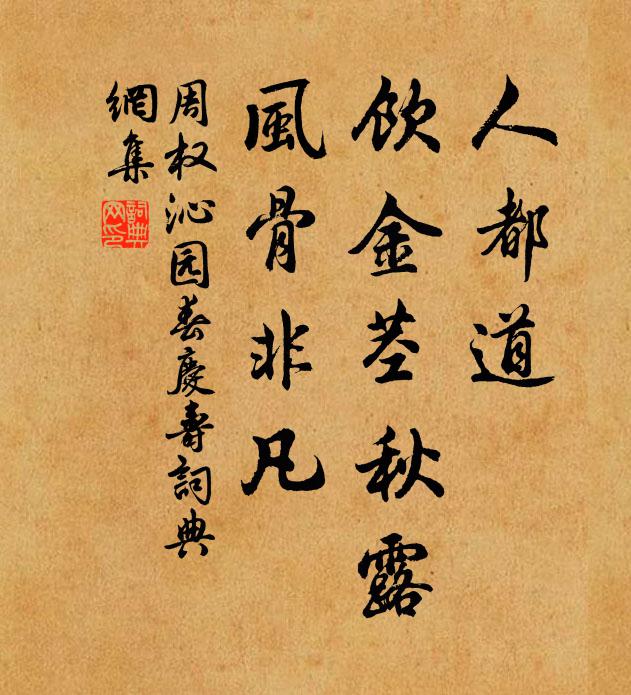 人都道
饮金茎秋露
風骨非凡
周权沁园春慶壽詞典
網集
詞典
网印